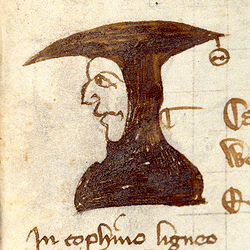 In cophino ligneo